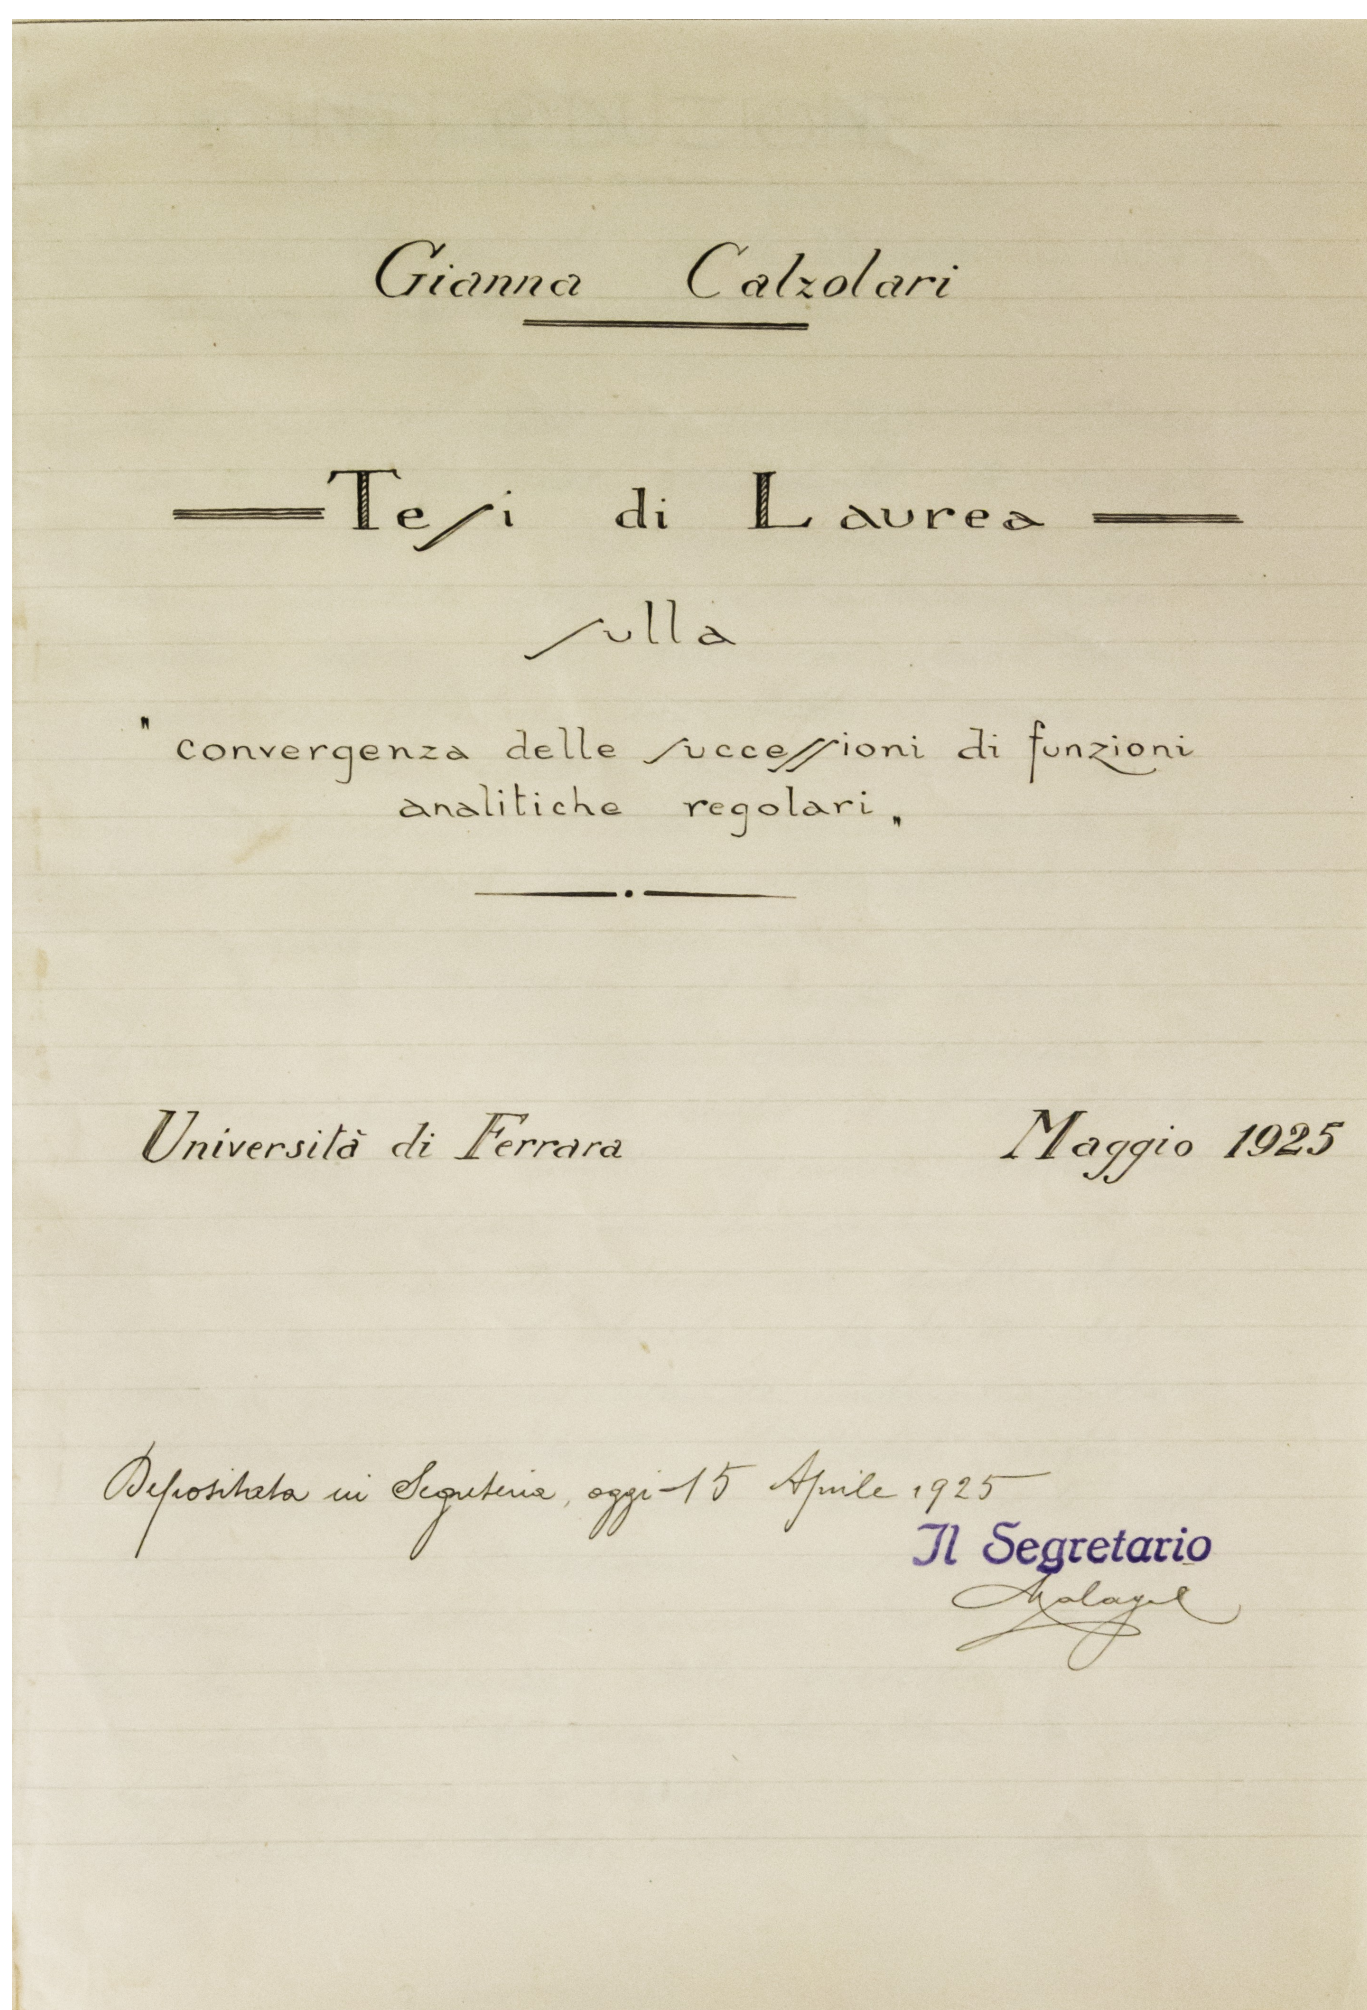 Gianna Calzolari
Tesi di Laurea
sulla
"convergenza delle successioni di funzioni
analitiche regolari"
Università di Ferrara Maggio 1925
Depositata in Segreteria, oggi 15 Aprile 1925
Il Segretario